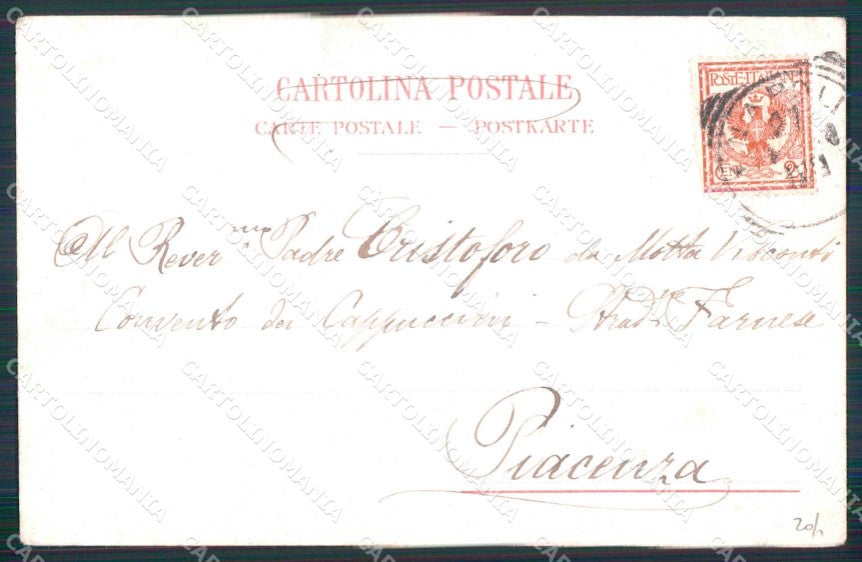 CARTOLINA POSTALE
CARTE POSTALE — POSTKARTE
POSTE·ITALIANE
2
Al Rever.mo Padre Cristoforo da Motta Visconti
Convento dei Cappuccini - Strad.ne Farnese
Piacenza
20/
CARTOLINOMANIA